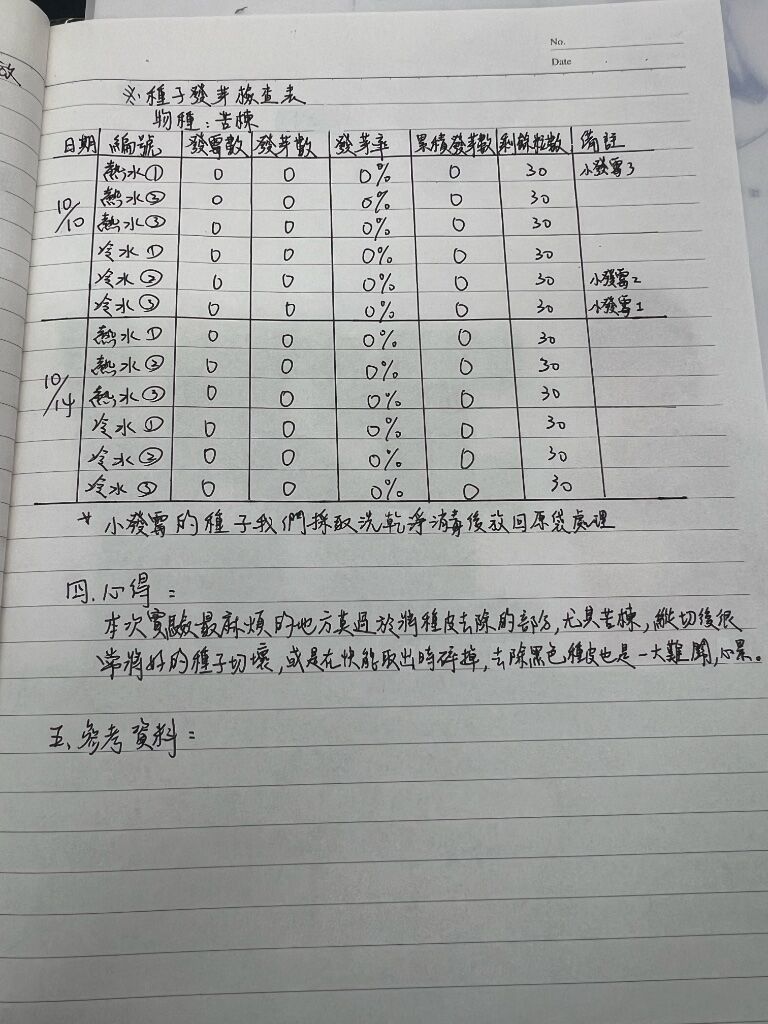 效
No.
Date
※種子發芽檢查表
物種：苦楝
日期 編號 發霉數 發芽數 發芽率 累積發芽數 剩餘粒數 備註
10/10 熱水① 0 0 0% 0 30 小發霉3
熱水② 0 0 0% 0 30
熱水③ 0 0 0% 0 30
冷水① 0 0 0% 0 30
冷水② 0 0 0% 0 30 小發霉2
冷水③ 0 0 0% 0 30 小發霉1
10/14 熱水① 0 0 0% 0 30
熱水② 0 0 0% 0 30
熱水③ 0 0 0% 0 30
冷水① 0 0 0% 0 30
冷水② 0 0 0% 0 30
冷水③ 0 0 0% 0 30
* 小發霉的種子我們採取洗乾淨消毒後放回原袋處理
四.心得：
本次實驗最麻煩的地方莫過於將種皮去除的部分,尤其苦楝,縱切後很
常將好的種子切壞,或是在快能取出時碎掉,去除黑色種皮也是一大難關,心累。
五.參考資料：